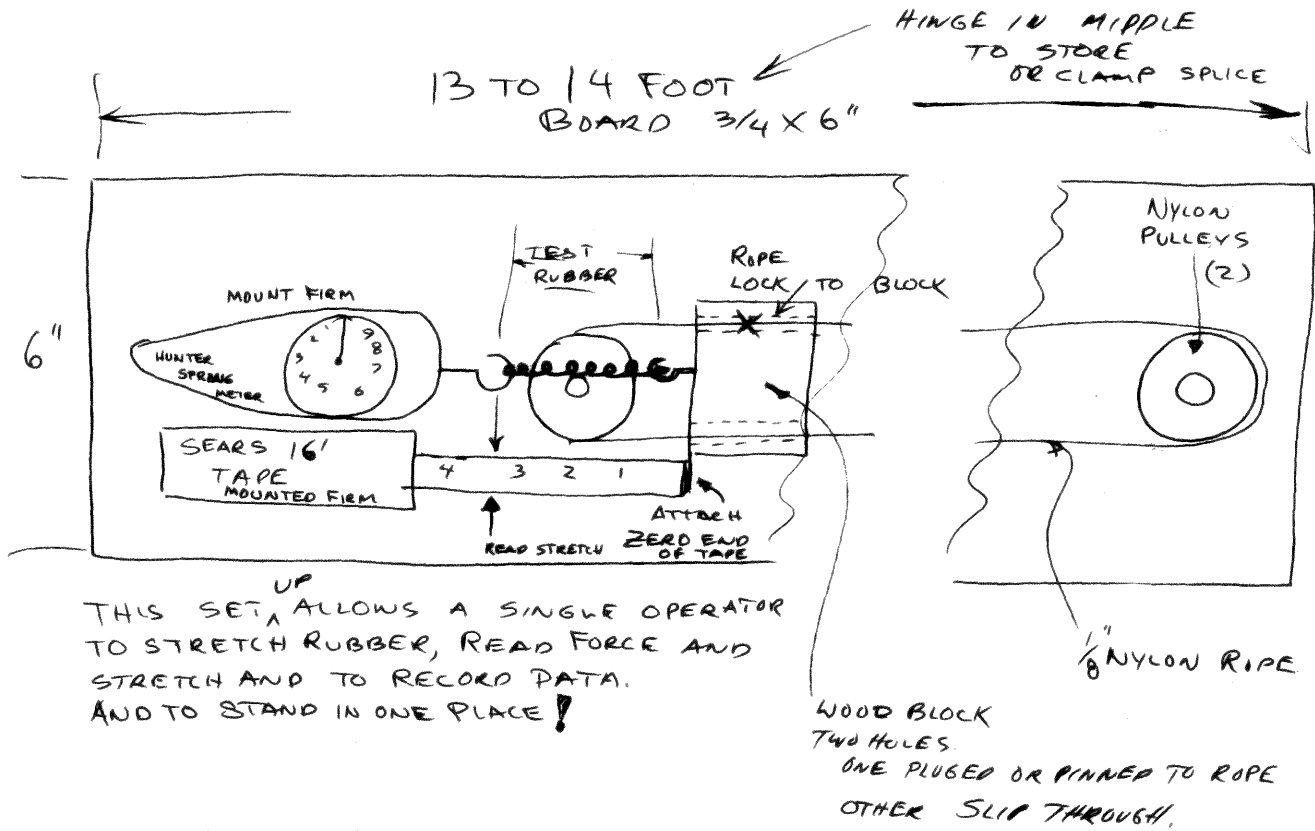 HINGE IN MIDDLE
TO STORE
OR CLAMP SPLICE
13 TO 14 FOOT
BOARD 3/4 X 6"
NYLON
PULLEYS
(2)
TEST
RUBBER
ROPE
LOCK TO BLOCK
MOUNT FIRM
6"
HUNTER
SPRING
METER
1 2 3 4 5 6 7 8 9
SEARS 16'
TAPE
MOUNTED FIRM
4 3 2 1
READ STRETCH
ATTACH
ZERO END
OF TAPE
THIS SET ^ UP ALLOWS A SINGLE OPERATOR
TO STRETCH RUBBER, READ FORCE AND
STRETCH AND TO RECORD DATA.
AND TO STAND IN ONE PLACE!
1/8" NYLON ROPE
WOOD BLOCK
TWO HOLES.
ONE PLUGED OR PINNED TO ROPE
OTHER SLIP THROUGH.